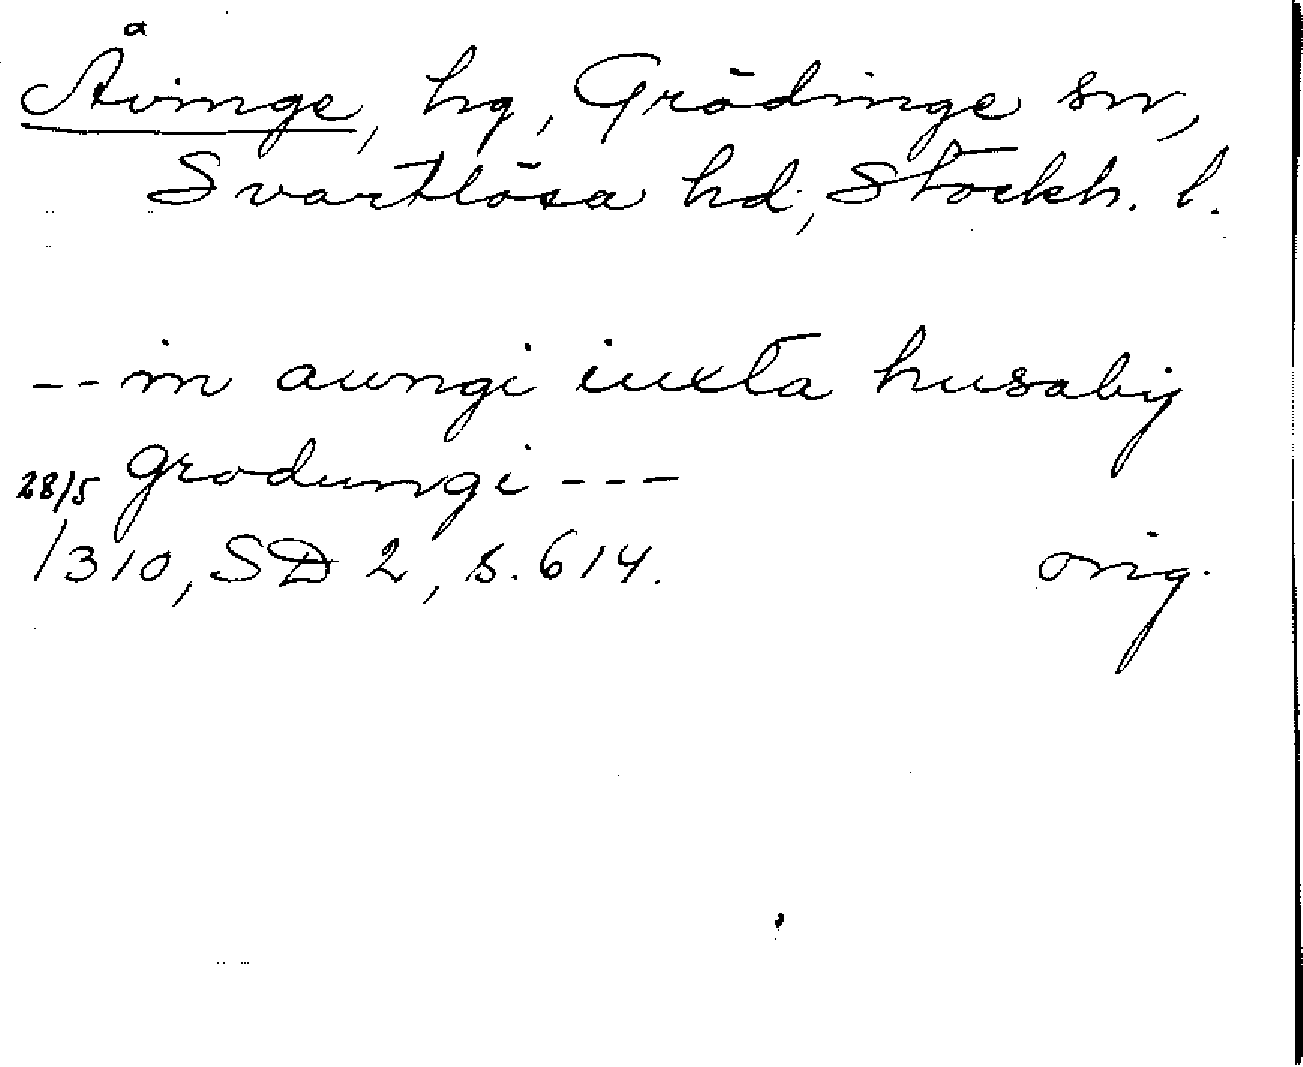 Åvinge, hg, Grödinge sn,
Svartlösa hd, Stockh. l.
-- in aungi iuxta husaby
28/5 grodungi ---
1310, SD 2, s. 614. orig.